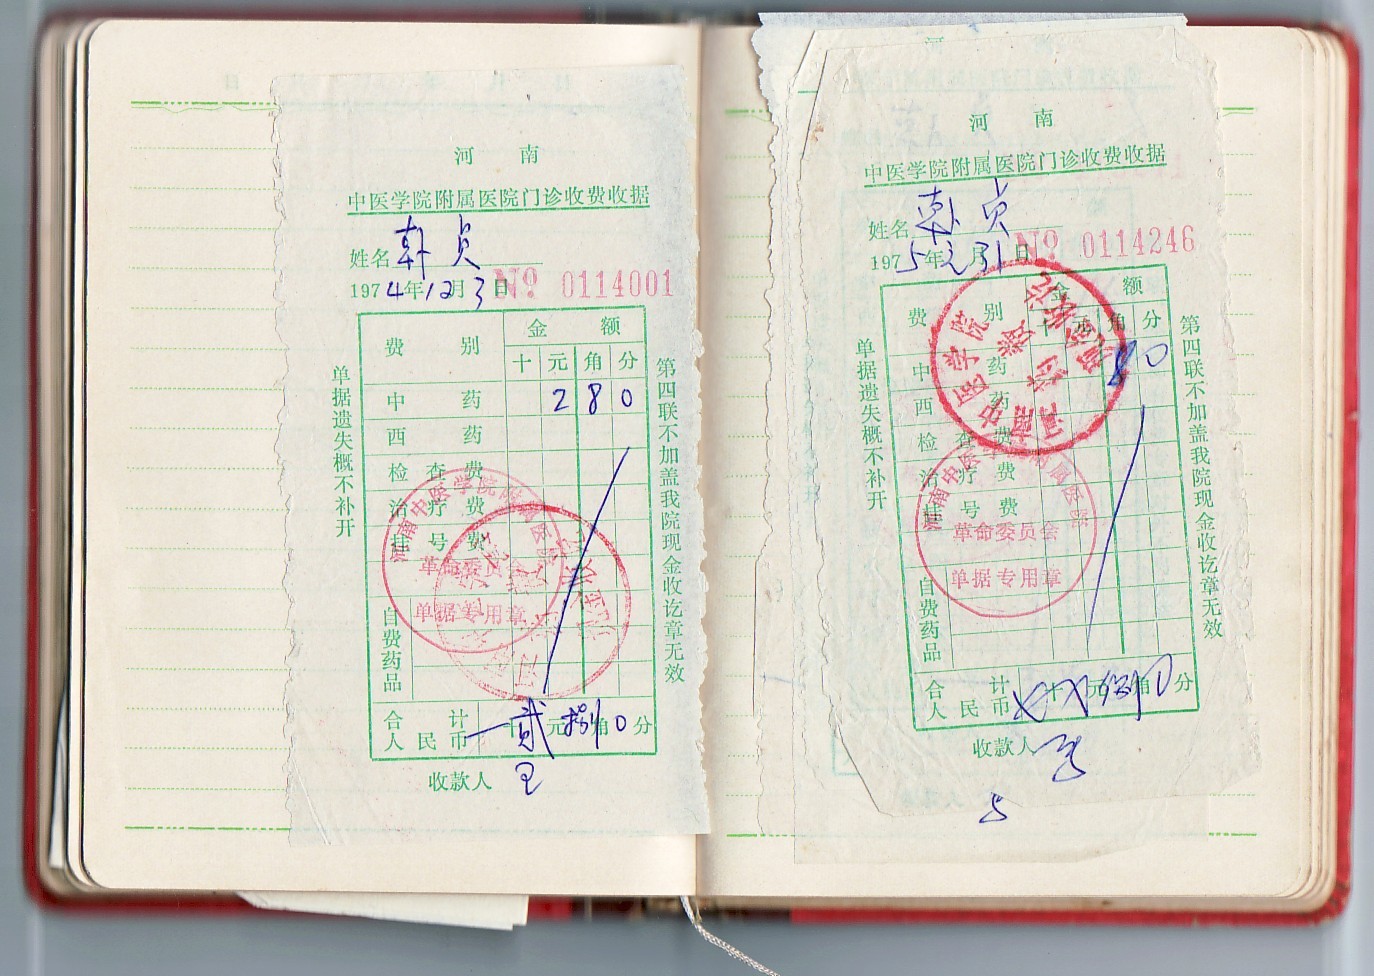 河 南
中医学院附属医院门诊收费收据
姓名 韩贞
1974年12月3日 № 0114001
费 别 金 额
十 元 角 分
中 药 2 8 0
西 药
检 查 费
治 疗 费
挂 号 费
自费药品
合 计
人民币 一十贰元捌角0分
收款人 王
单据遗失概不补开
第四联不加盖我院现金收讫章无效
河南中医学院附属医院
革命委员会
单据专用章
河 南
中医学院附属医院门诊收费收据
姓名 韩贞
1975年 月31日 № 0114246
费 别 金 额
十 元 角 分
中 药 8 0
西 药
检 查 费
治 疗 费
挂 号 费
自费药品
合 计
人民币 X十X元捌角0分
收款人
单据遗失概不补开
第四联不加盖我院现金收讫章无效
河南中医学院
河南中医学院附属医院
革命委员会
单据专用章
5